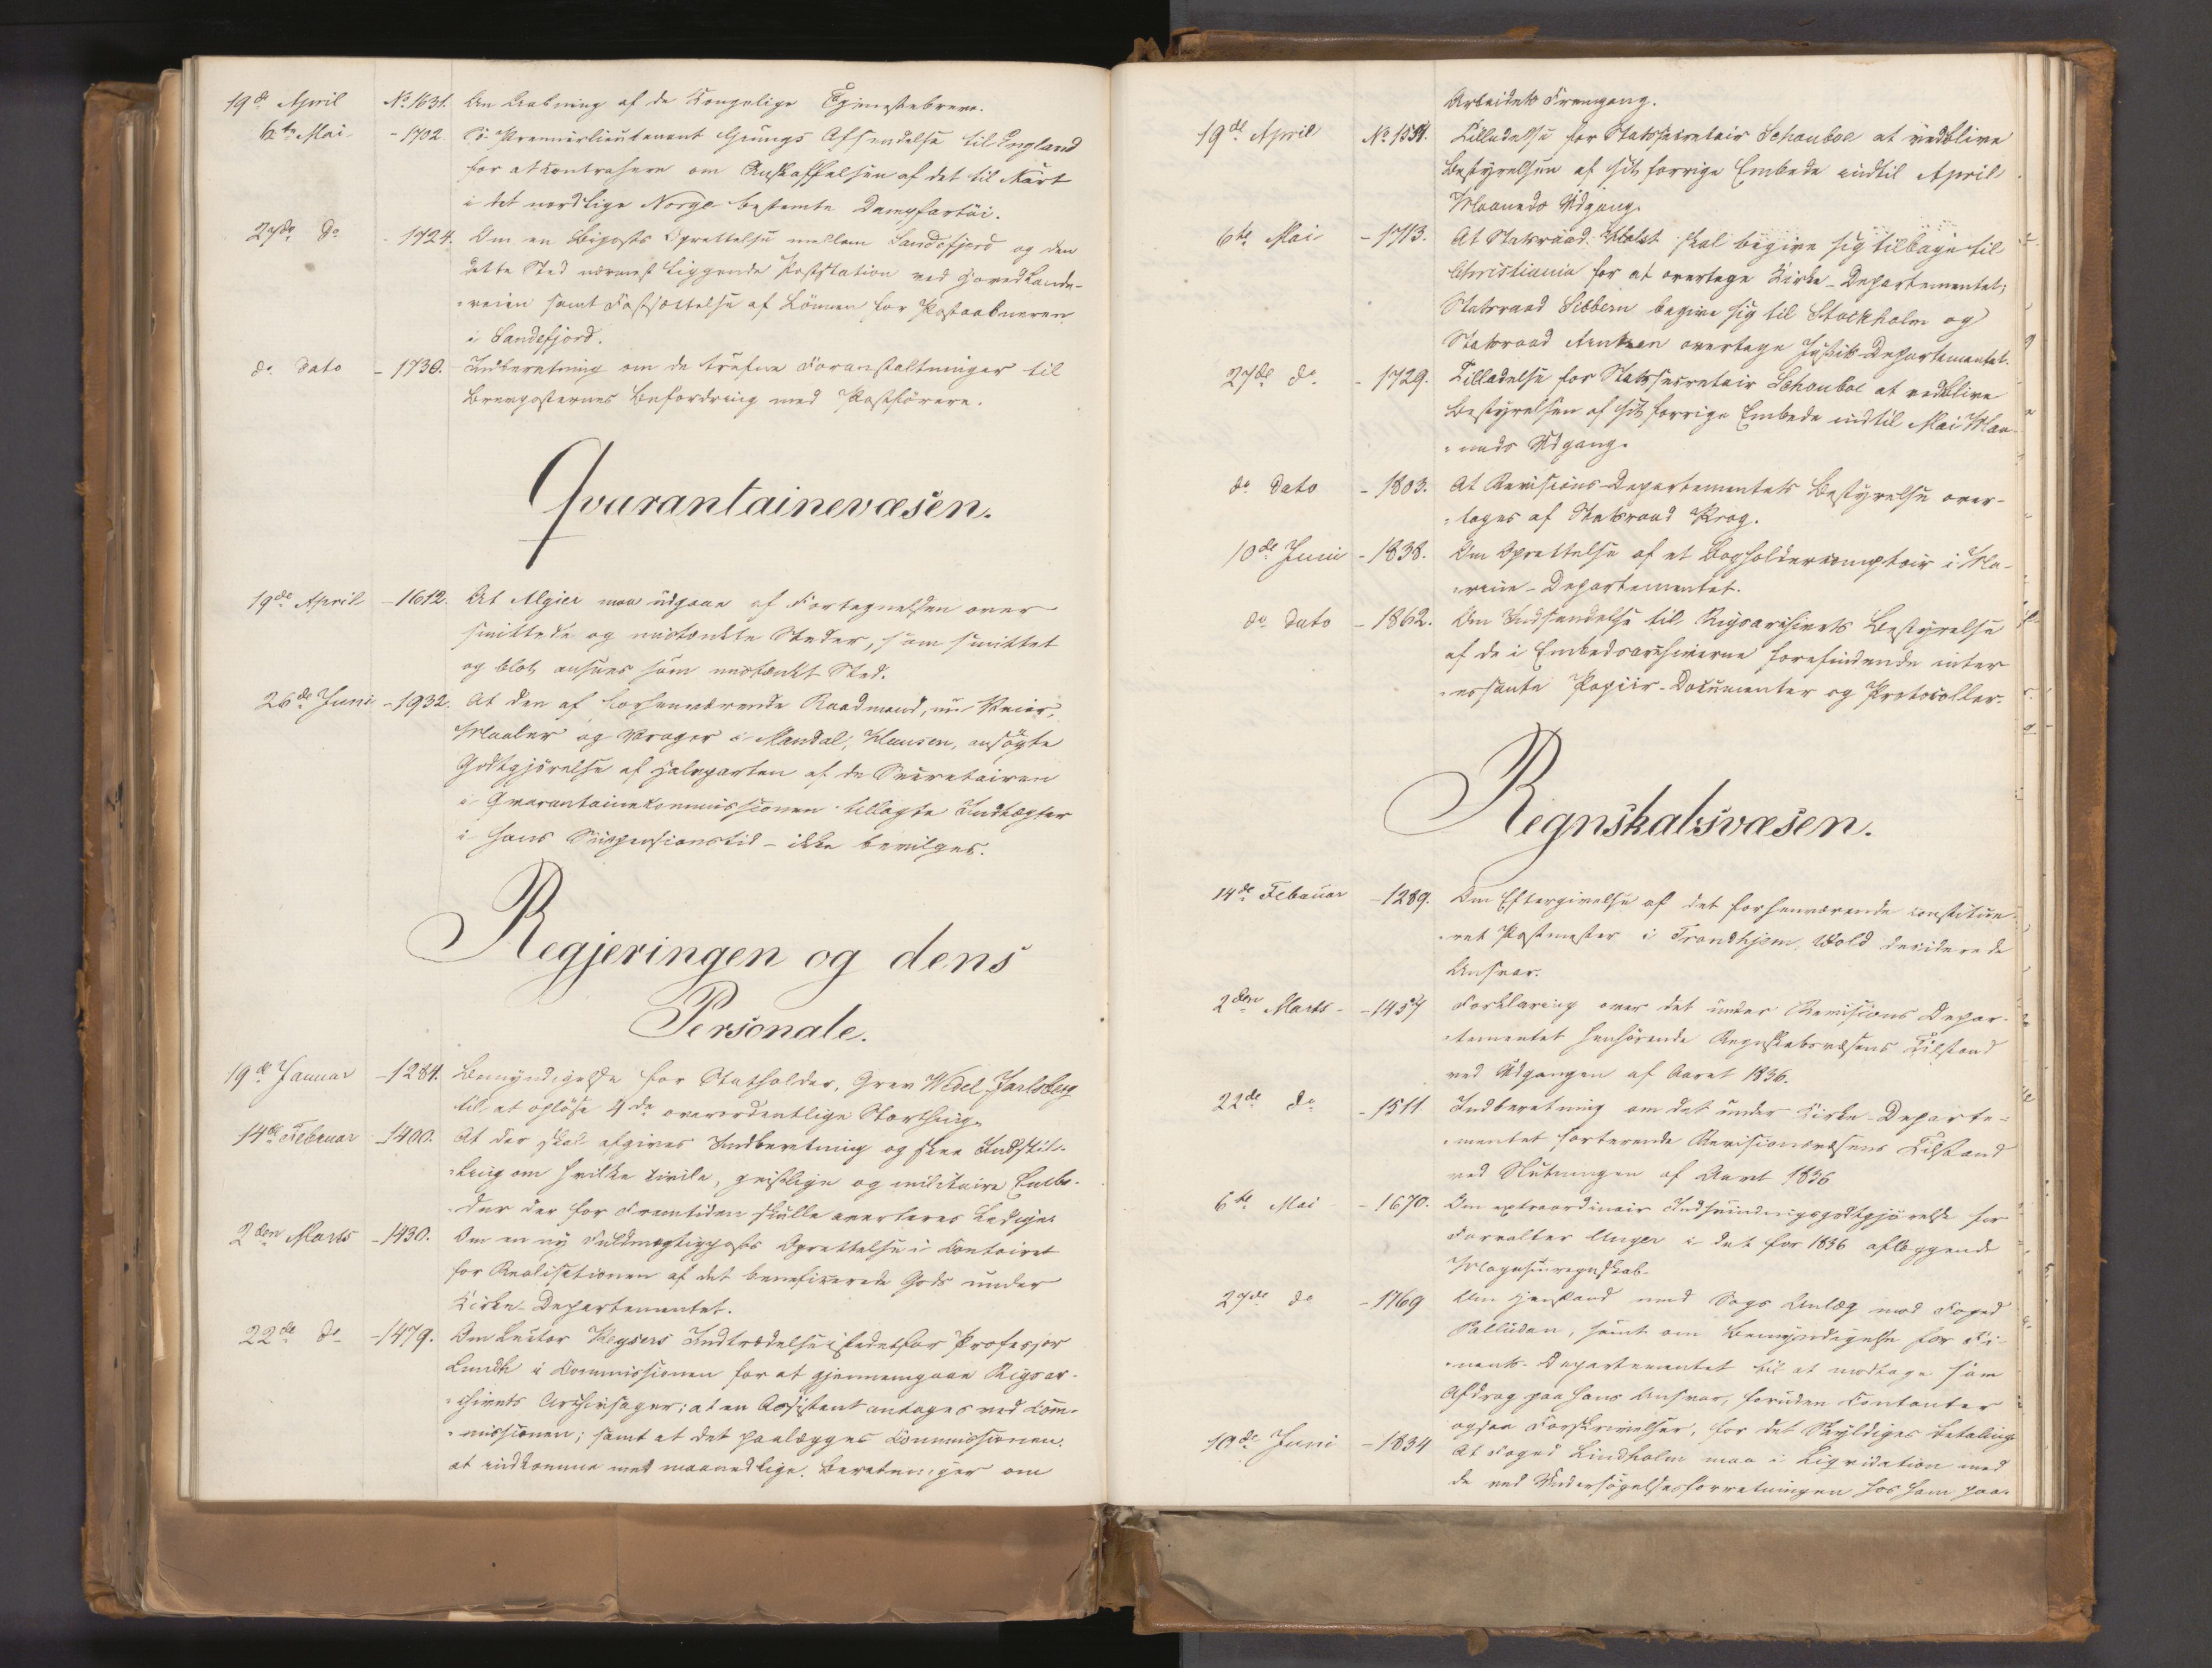 19de April No 1631. Om Aabning af de Kongelige Tjenestebreve.
6te Mai - 1702. Sö-Premierlieutenant Gjerings Afsendelse til England
for at kontrahere om Anskaffelsen af det til Fart
i det nordlige Norge bestemte Dampfartöi.
27de do - 1724. Om en Biposts Oprettelse mellem Sandefjord og den
dette Sted nærmest liggende Poststation ved Hovedlande-
veien samt Fastsættelse af Lönnen for Postaabneren
i Sandefjord.
do dato - 1730. Indberetning om de trufne Foranstaltninger til
Brevposternes Befordring med Postförere.
Qvarantainevæsen.
19de April - 1612. At Algier maa udgaae af Fortegnelsen over
smittede og mistænkte Steder, som smittet
og blot ansees som mistænkt Sted.
26de Juni - 1932. At den af forhenværende Raadmand, nu Veier,
Maaler og Vrager i Mandal, Clausen, ansögte
Godtgjörelse af Halvparten af de Secretairen
i Qvarantainekommissionen tillagte Indtægter
i hans Suspensionstid - ikke bevilges.
Regjeringen og dens
Personale.
19de Januar - 1284. Bemyndigelse for Statholder, Grev Wedel-Jarlsberg
til at oplöse 4de overordentlige Storthing.
14de Februar - 1400. At der skal afgives Indberetning og skee Indstil-
ling om hvilke civile, geistlige og militaire Embe-
der der for Fremtiden skulle averteres ledige.
2den Marts - 1430. Om en ny Fuldmægtigposts Oprettelse i Contoiret
for Realisationen af det beneficerede Gods under
Kirke-Departementet.
22de do - 1479. Om Lector Keysers Indtrædelse istedetfor Professor
Lundh i Commissionen for at gjennemgaae Rigsar-
chivets Archivsager; at en Assistent antages ved Com-
missionen; samt at det paalægges Commissionen
at indkomme med maanedlige Beretninger om
Arbeidets Fremgang.
19de April No 1551. Tilladelse for Statssecretair Schouboe at vedblive
Bestyrelsen af sit forrige Embede indtil April
Maaneds Udgang.
6te Mai - 1713. At Statsraad Holst skal begive sig tilbage til
Christiania for at overtage Kirke-Departementet;
Statsraad Sibbern begive sig til Stockholm og
Statsraad Arntzen overtage Justits-Departementet.
27de do - 1729. Tilladelse for Statssecretair Schouboe at vedblive
Bestyrelsen af sit forrige Embede indtil Mai Maa-
neds Udgang.
do dato - 1803. At Revisions-Departementets Bestyrelse over-
tages af Statsraad Krog.
10de Juni - 1838. Om Oprettelse af et Bogholdercomptoir i Ma-
rine-Departementet.
do dato - 1862. Om Indsendelse til Rigsarchivets Bestyrelse
af de i Embedsarchiverne forefindende inter
essante Papiir-Documenter og Protocoller.
Regnskabsvæsen.
14de Februar - 1289. Om Eftergivelse af det forhenværende constitue-
ret Postmester i Trondhjem, Wold deciderede
Ansvar.
2den Marts - 1457 Forklaring over det under Revisions Depar-
tementet henhörende Regnskabsvæsens Tilstand
ved Udgangen af Aaret 1836.
22de do - 1511 Indberetning om det under Kirke-Departe-
mentet sorterende Revisionsvæsens Tilstand
ved Slutningen af Aaret 1836
6te Mai - 1670. Om extraordinair Indsvindingsgodtgjörelse for
Forvalter Unger i det for 1836 aflæggende
Magasinregnskab.
27de do - 1769 Om Henstand med Sags Anlæg mod Foged
Palludan, samt om Bemyndigelse for Fi-
nants-Departementet til at modtage som
Afdrag paa hans Ansvar, foruden Contanter
ogsaa Forskrivelser, for det Skyldiges Betaling
10de Juni - 1834 At Foged Lindholm maa i Liqvidation med
de ved Undersögelsesforretningen hos ham paa-